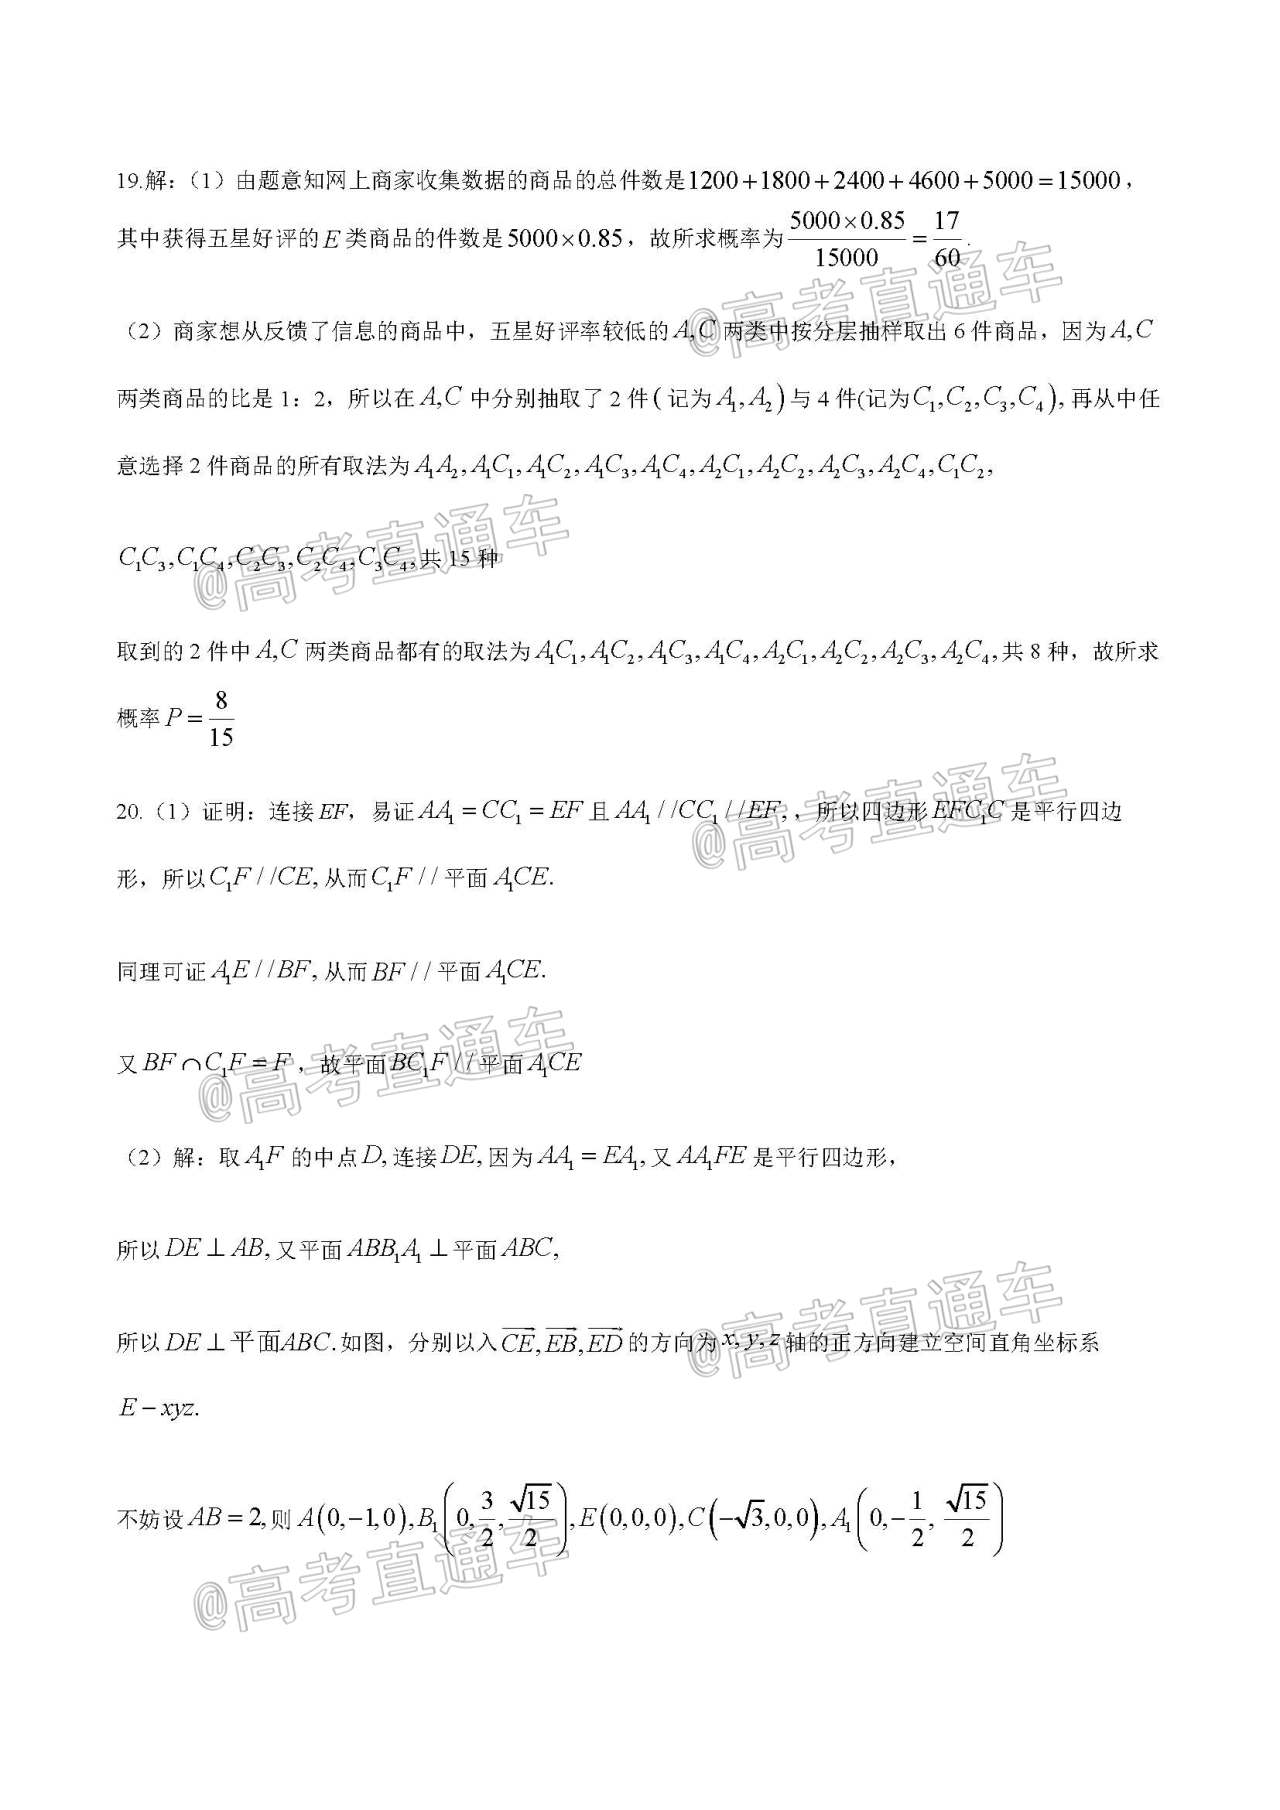 19.解：（1）由题意知网上商家收集数据的商品的总件数是1200+1800+2400+4600+5000=15000，
其中获得五星好评的 E 类商品的件数是 5000×0.85，故所求概率为 \frac{5000×0.85}{15000} = \frac{17}{60}.
@高考直通车
（2）商家想从反馈了信息的商品中，五星好评率较低的 A,C 两类中按分层抽样取出 6 件商品，因为 A,C
两类商品的比是 1：2，所以在 A,C 中分别抽取了 2 件 ( 记为 A₁,A₂ ) 与 4 件(记为 C₁,C₂,C₃,C₄ ), 再从中任
意选择 2 件商品的所有取法为 A₁A₂,A₁C₁,A₁C₂,A₁C₃,A₁C₄,A₂C₁,A₂C₂,A₂C₃,A₂C₄,C₁C₂,
C₁C₃,C₁C₄,C₂C₃,C₂C₄,C₃C₄,共 15 种
@高考直通车
取到的 2 件中 A,C 两类商品都有的取法为 A₁C₁,A₁C₂,A₁C₃,A₁C₄,A₂C₁,A₂C₂,A₂C₃,A₂C₄,共 8 种，故所求
概率 P = \frac{8}{15}
20.（1）证明：连接 EF，易证 AA₁ = CC₁ = EF 且 AA₁ //CC₁ //EF, ，所以四边形 EFC₁C 是平行四边
@高考直通车
形，所以 C₁F //CE, 从而 C₁F // 平面 A₁CE.
同理可证 A₁E //BF, 从而 BF // 平面 A₁CE.
又 BF ∩ C₁F = F ，故平面 BC₁F // 平面 A₁CE
@高考直通车
（2）解：取 A₁F 的中点 D, 连接 DE, 因为 AA₁ = EA₁, 又 AA₁FE 是平行四边形，
所以 DE ⊥ AB, 又平面 ABB₁A₁ ⊥ 平面 ABC,
所以 DE ⊥ 平面ABC. 如图，分别以入 \overrightarrow{CE},\overrightarrow{EB},\overrightarrow{ED} 的方向为 x, y, z 轴的正方向建立空间直角坐标系
@高考直通车
E − xyz.
不妨设 AB = 2, 则 A(0,−1,0), B₁(0, \frac{3}{2}, \frac{\sqrt{15}}{2}), E(0,0,0), C(−\sqrt{3},0,0), A₁(0, −\frac{1}{2}, \frac{\sqrt{15}}{2})
@高考直通车